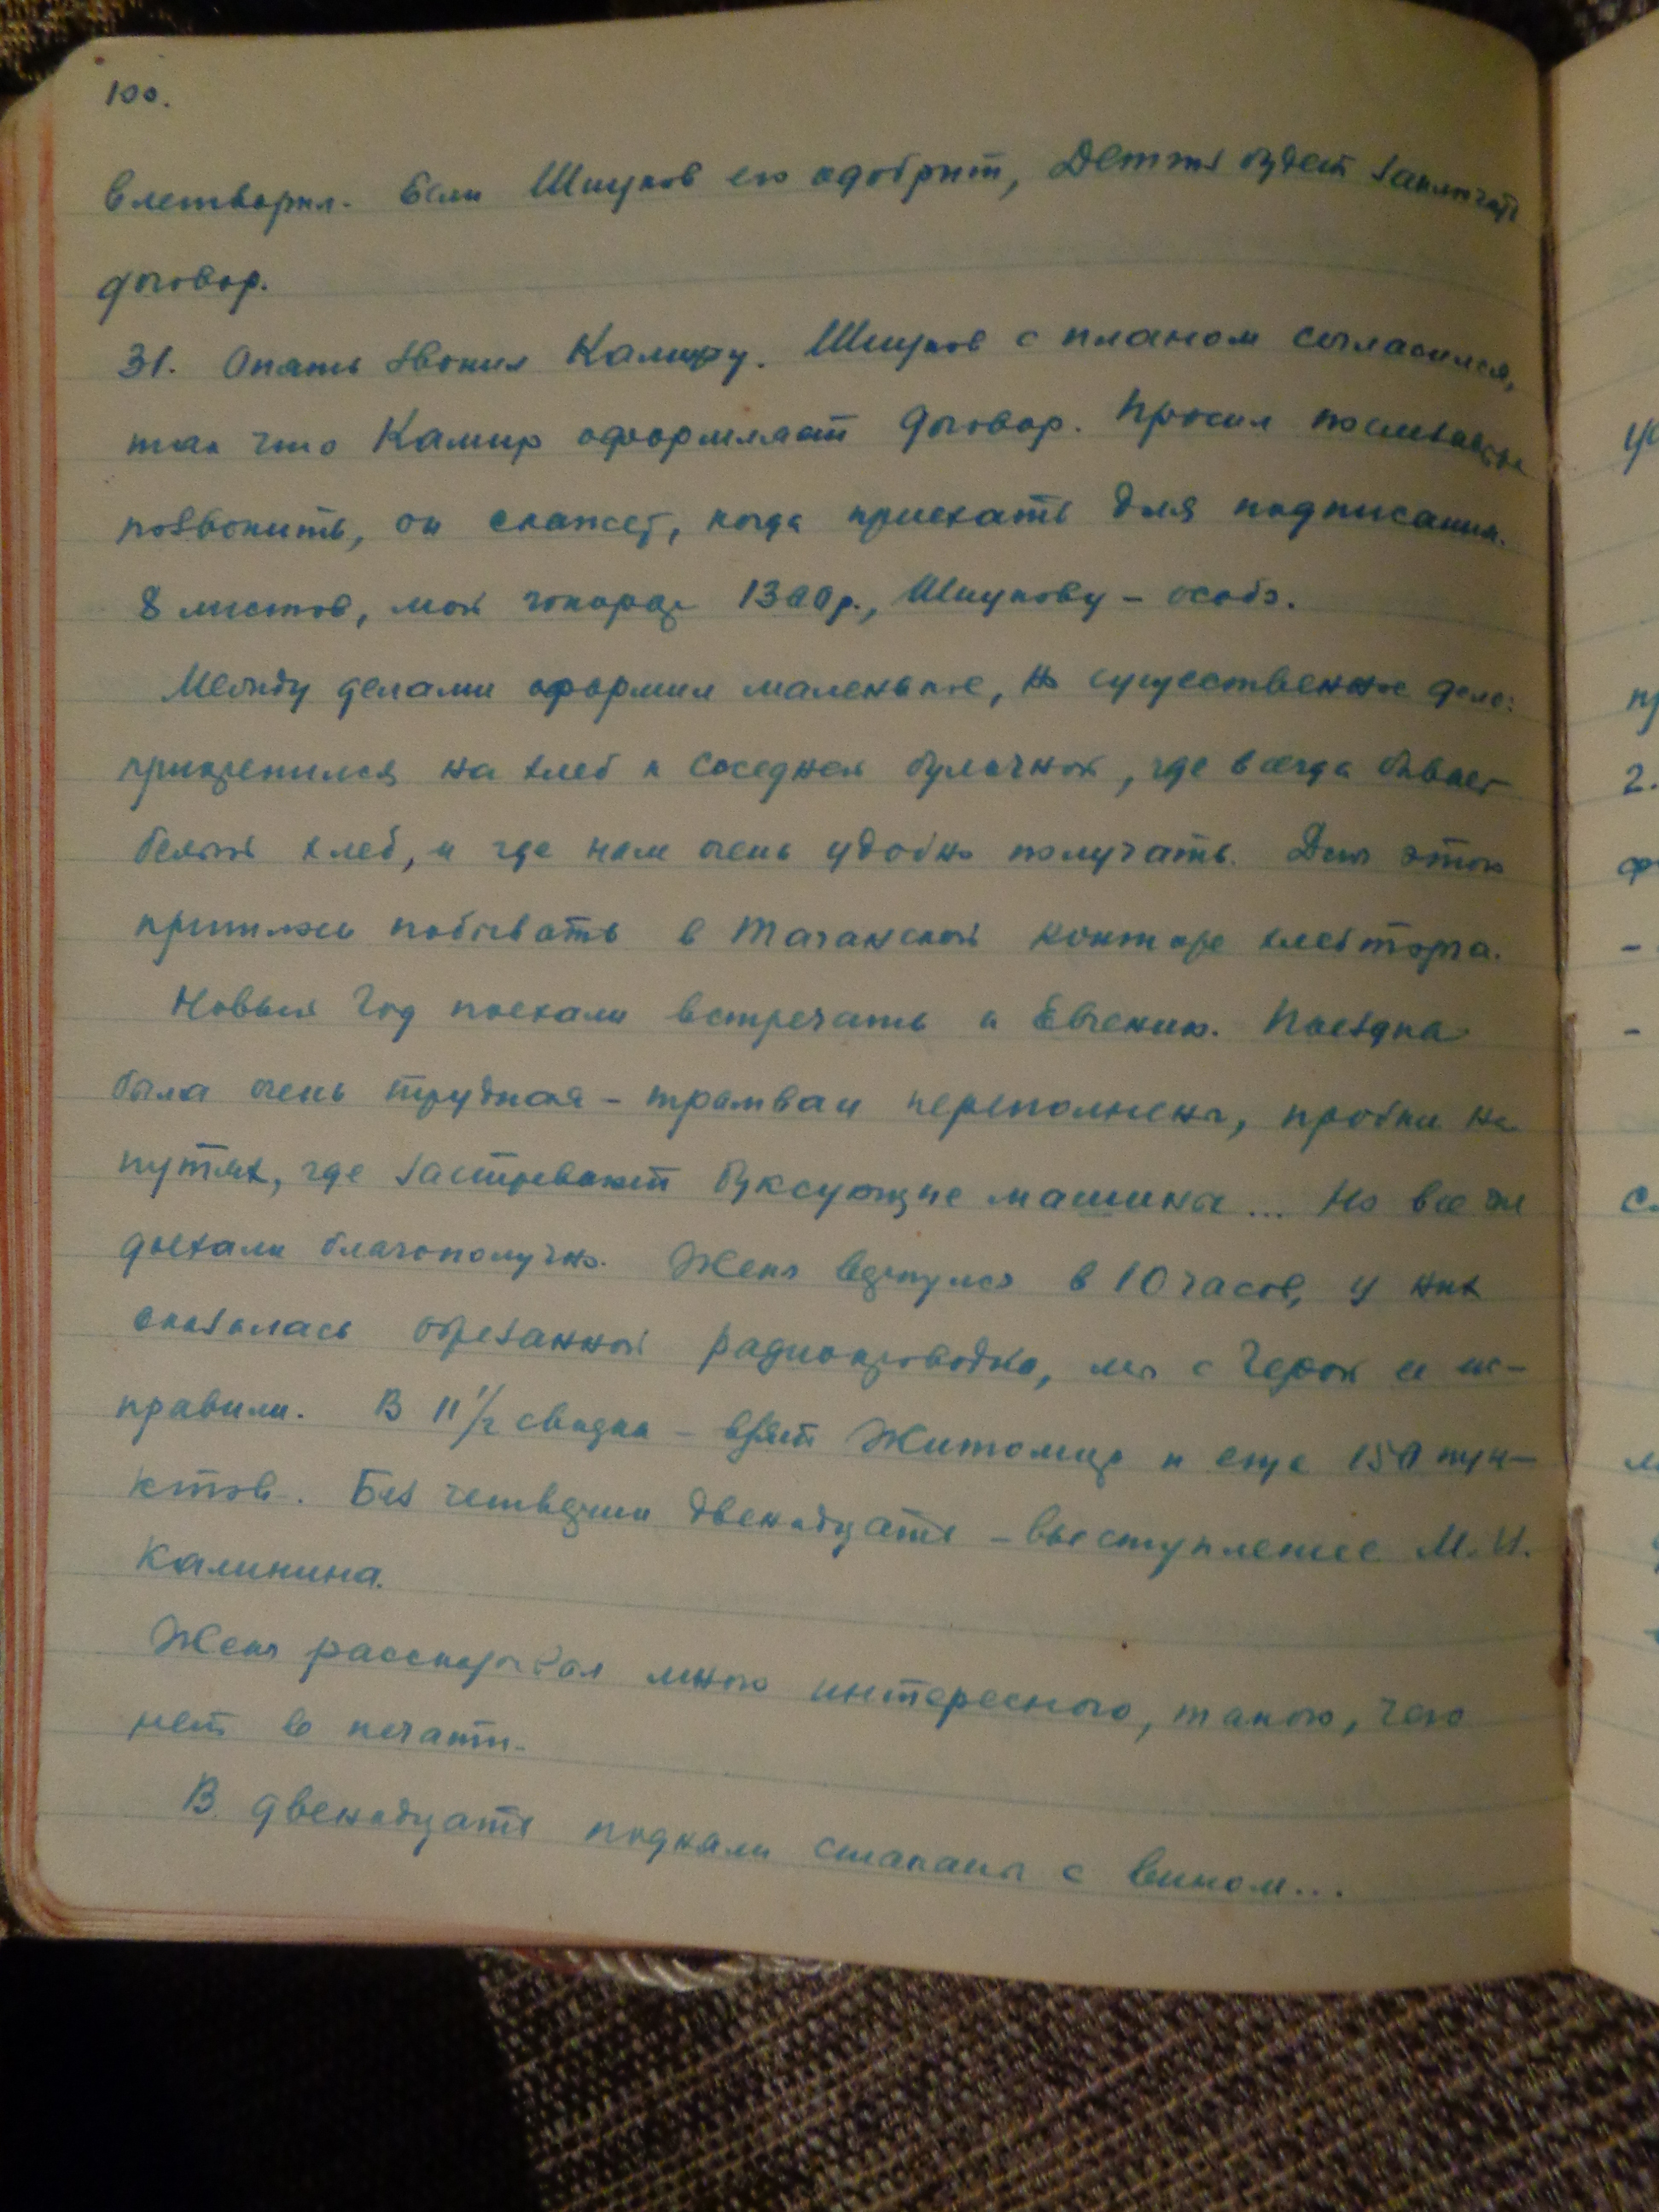 100.
влетворил. Если Шишков его одобрит, Детгиз будет заключать
договор.
31. Опять звонил Камиру. Шишков с планом согласился,
так что Камир оформляет договор. Просил послезавтра
позвонить, он скажет, когда приехать для подписания.
8 листов, мой гонорар 1300 р., Шишкову – особо.
Между делами оформил маленькое, но существенное дело:
прикрепился на хлеб к соседней булочной, где всегда бывает
белый хлеб, и где нам очень удобно получать. Для этого
пришлось побывать в Таганской конторе хлебторга.
Новый Год поехали встречать к Евгению. Поездка
была очень трудная – трамваи переполнены, пробки на
путях, где застревают буксующие машины... Но все же
доехали благополучно. Женя вернулся в 10 часов, у них
оказалась обрезанной радиопроводка, мы с Герой ее ис-
правили. В 11 1/2 сводка – взят Житомир и еще 150 пун-
ктов. Без четверти двенадцать – выступление М. И.
Калинина.
Женя рассказывал много интересного, такого, чего
нет в печати.
В двенадцать подняли стаканы с вином...